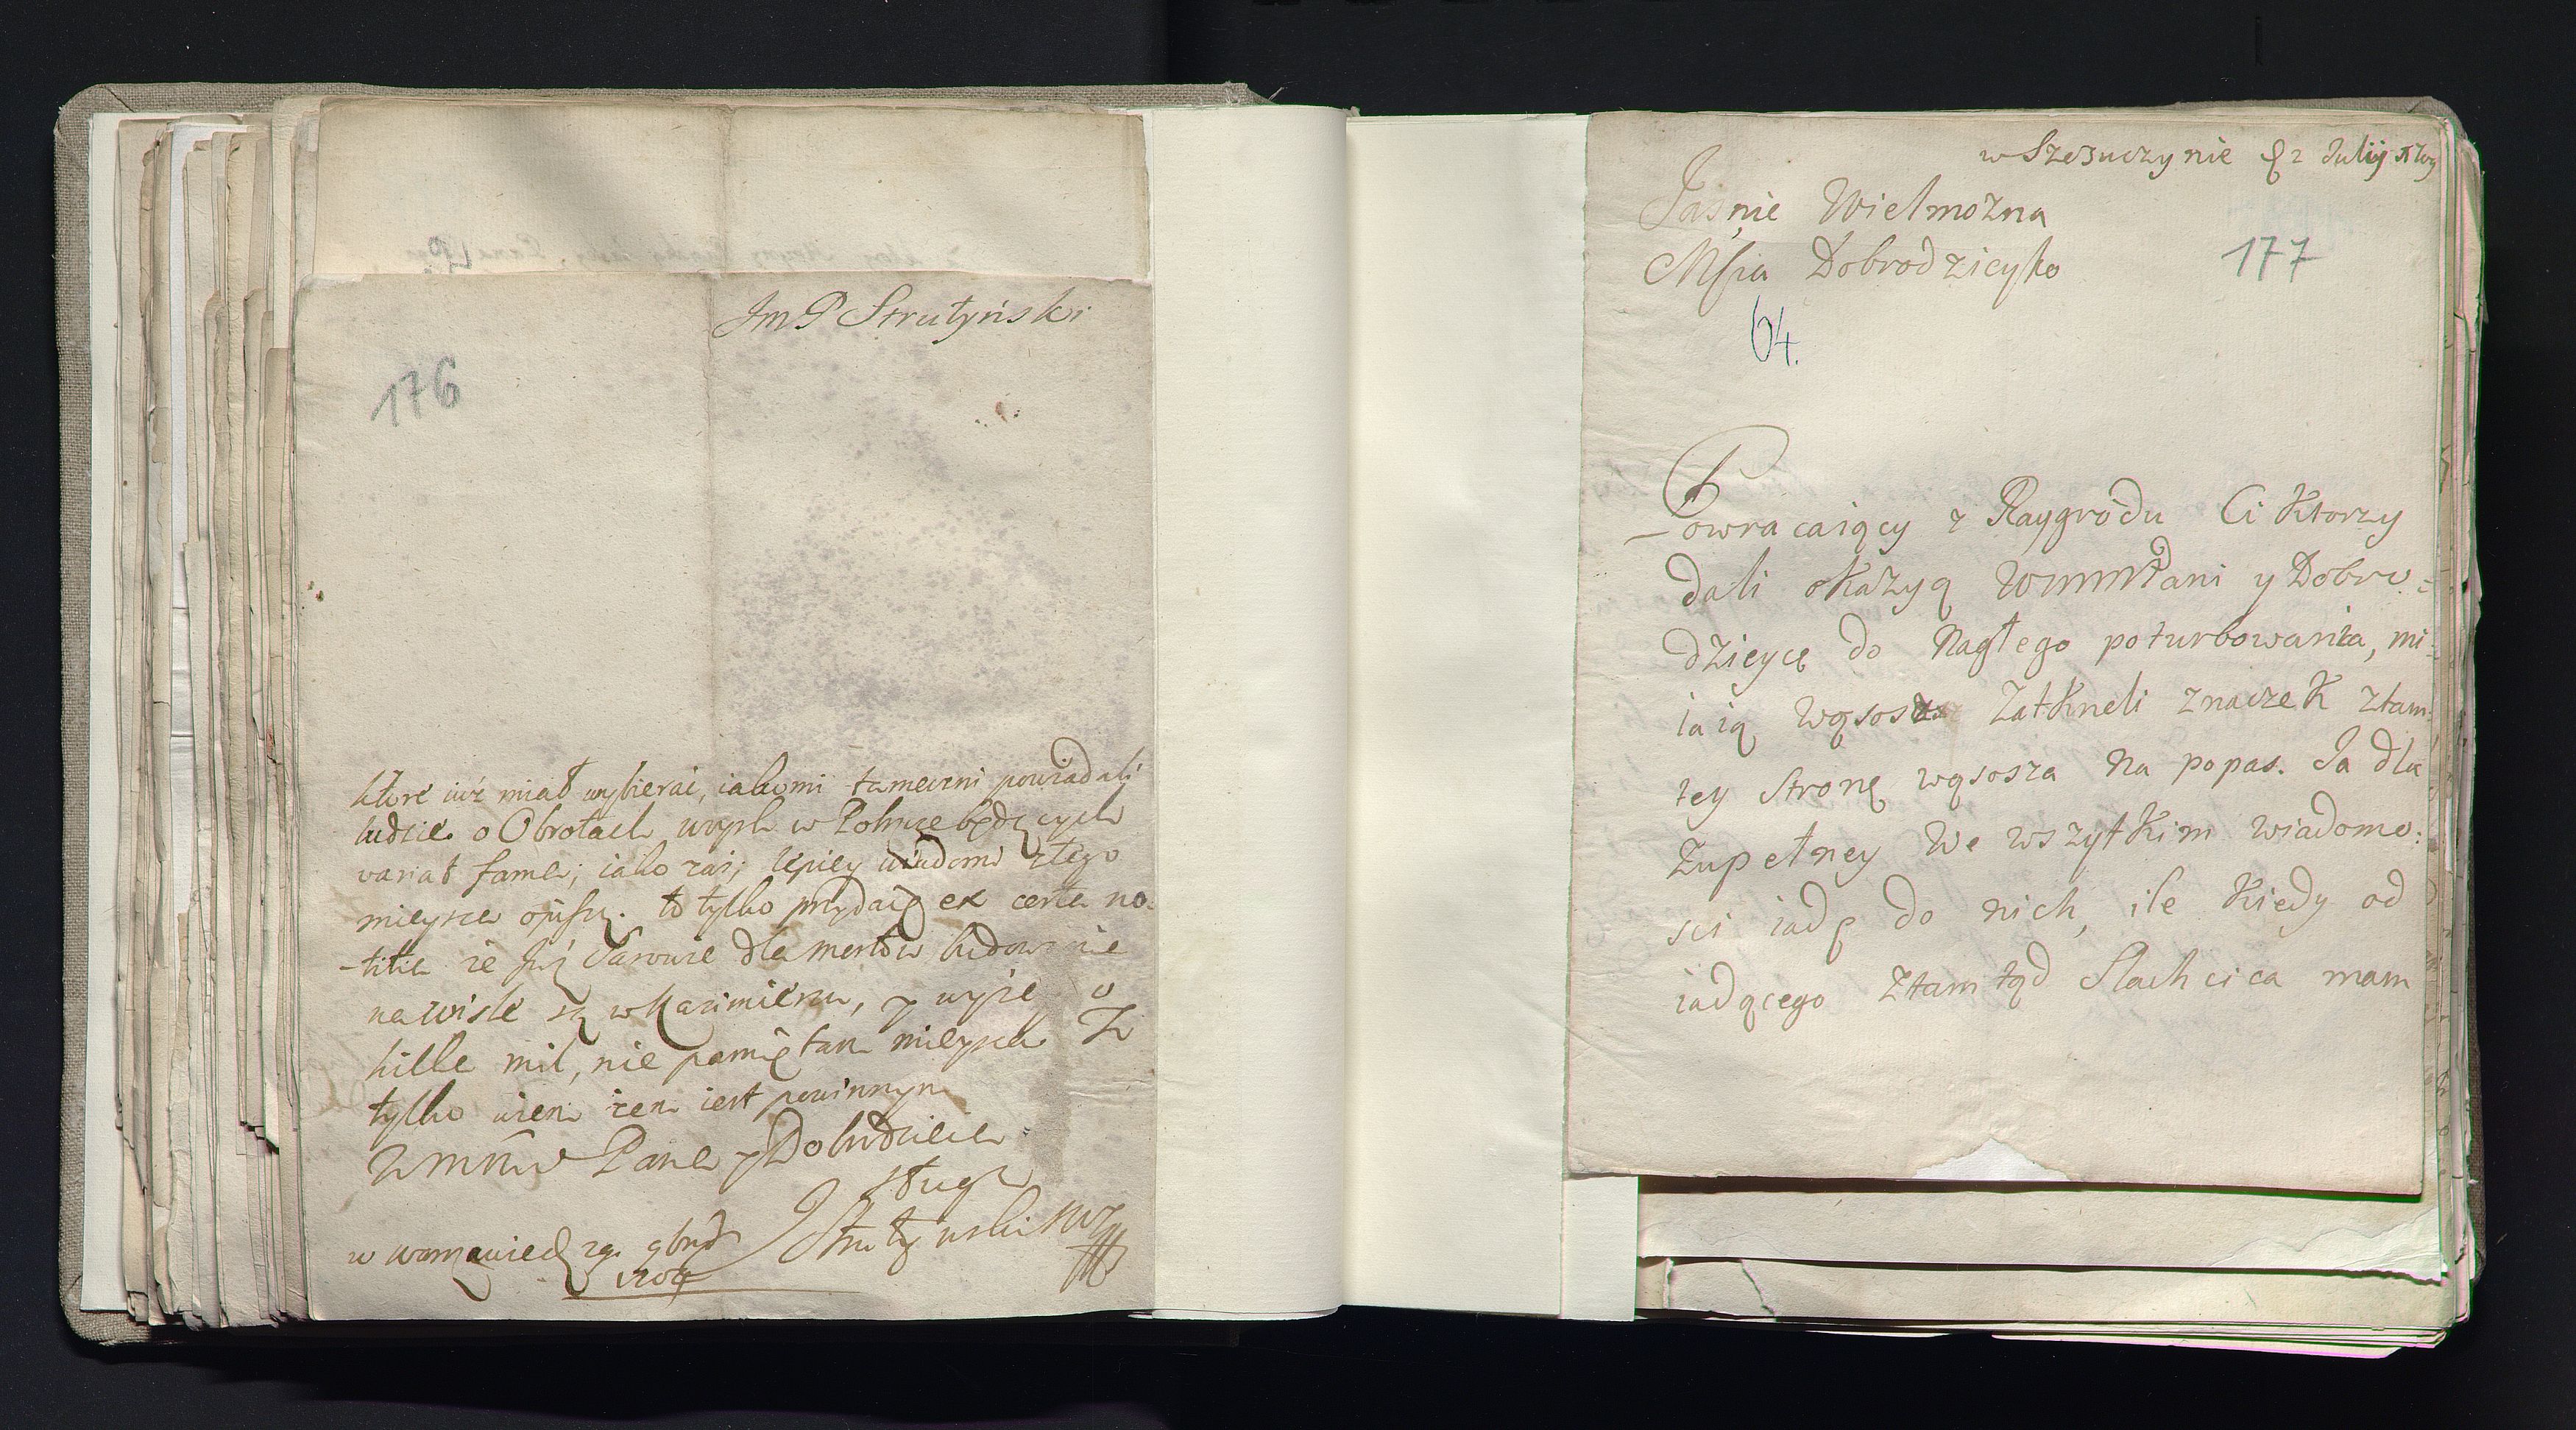 Im P Strutyński
176
które iuż miał wybierać, iako mi tameczni powiadali
ludzie. o Obrotach woysk w Polszcze będących
variat fama; iako zaś lepiey wiadomi z tego
mieysca opiszą. to tylko przydaię ex certa no-
-titia że są Sasowie dla mostów budowanie
na Wiśle są w Kazimierzu, y wyże o
kilka mil, nie pamiętam mieysca Ia
tylko wiem żem iest powinnym
Wmm Pana y Dobrodzieia
sługą
Strutyński
w 9bris
1704
w Szczuczynie 2 Julij
Jasnie Wielmożna
Msia Dobrodzieyko
177
64.
Powracaiący z Raygrodu Ci Ktorzy
dali okazyą WmmPani y Dobro=
dzieyce do Nagłego poturbowania, mi=
iaią Wąsosz Zatkneli znaczek z tam
tey Stronę wąsosza na popas. Ia dla
Zupełney We wszytkim wiadomo:
sci iadę do nich, ile Kiedy od
iadącego Ztamtąd Slachcica mam